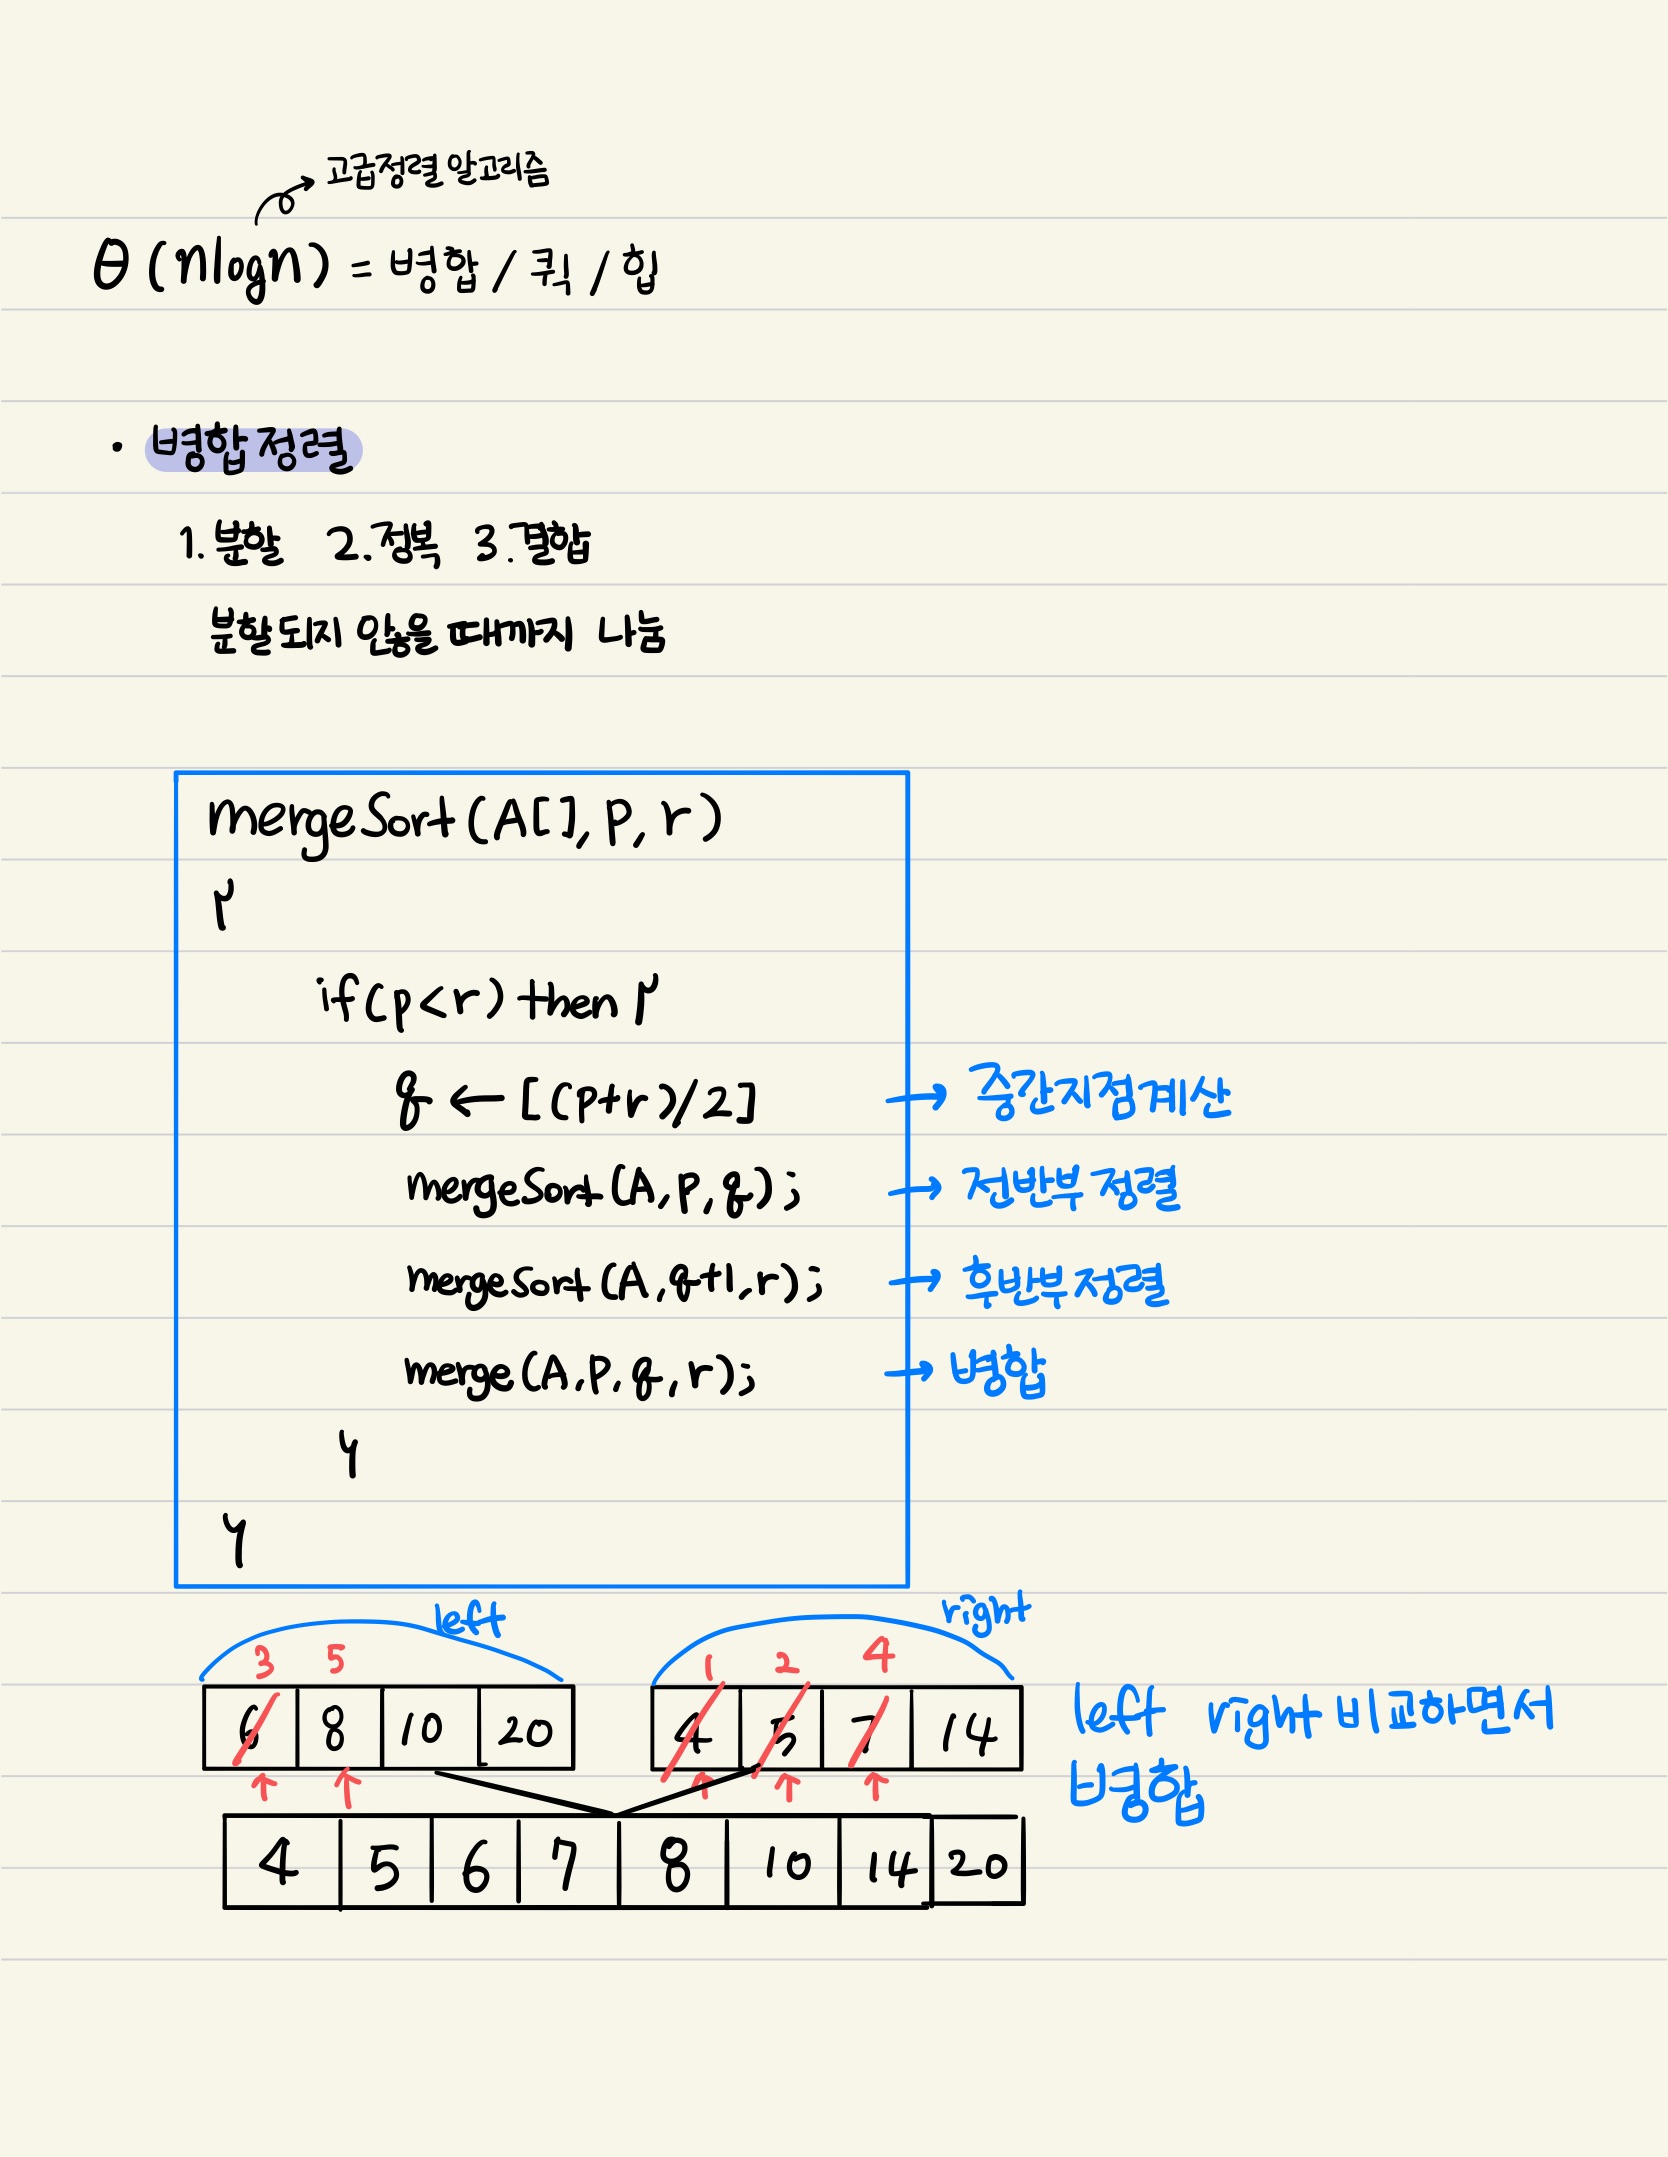 고급정렬 알고리즘
θ(nlogn) = 병합 / 퀵 / 힙
· 병합 정렬
1. 분할 2. 정복 3. 결합
분할되지 않을 때까지 나눔
mergeSort(A[], p, r)
{
if(p<r) then {
q ← [(p+r)/2] → 중간지점계산
mergeSort(A, p, q); → 전반부 정렬
mergeSort(A, q+1, r); → 후반부 정렬
merge(A, p, q, r); → 병합
}
}
left right
3 5 1 2 4
6 8 10 20 4 5 7 14 left right 비교하면서
병합
4 5 6 7 8 10 14 20